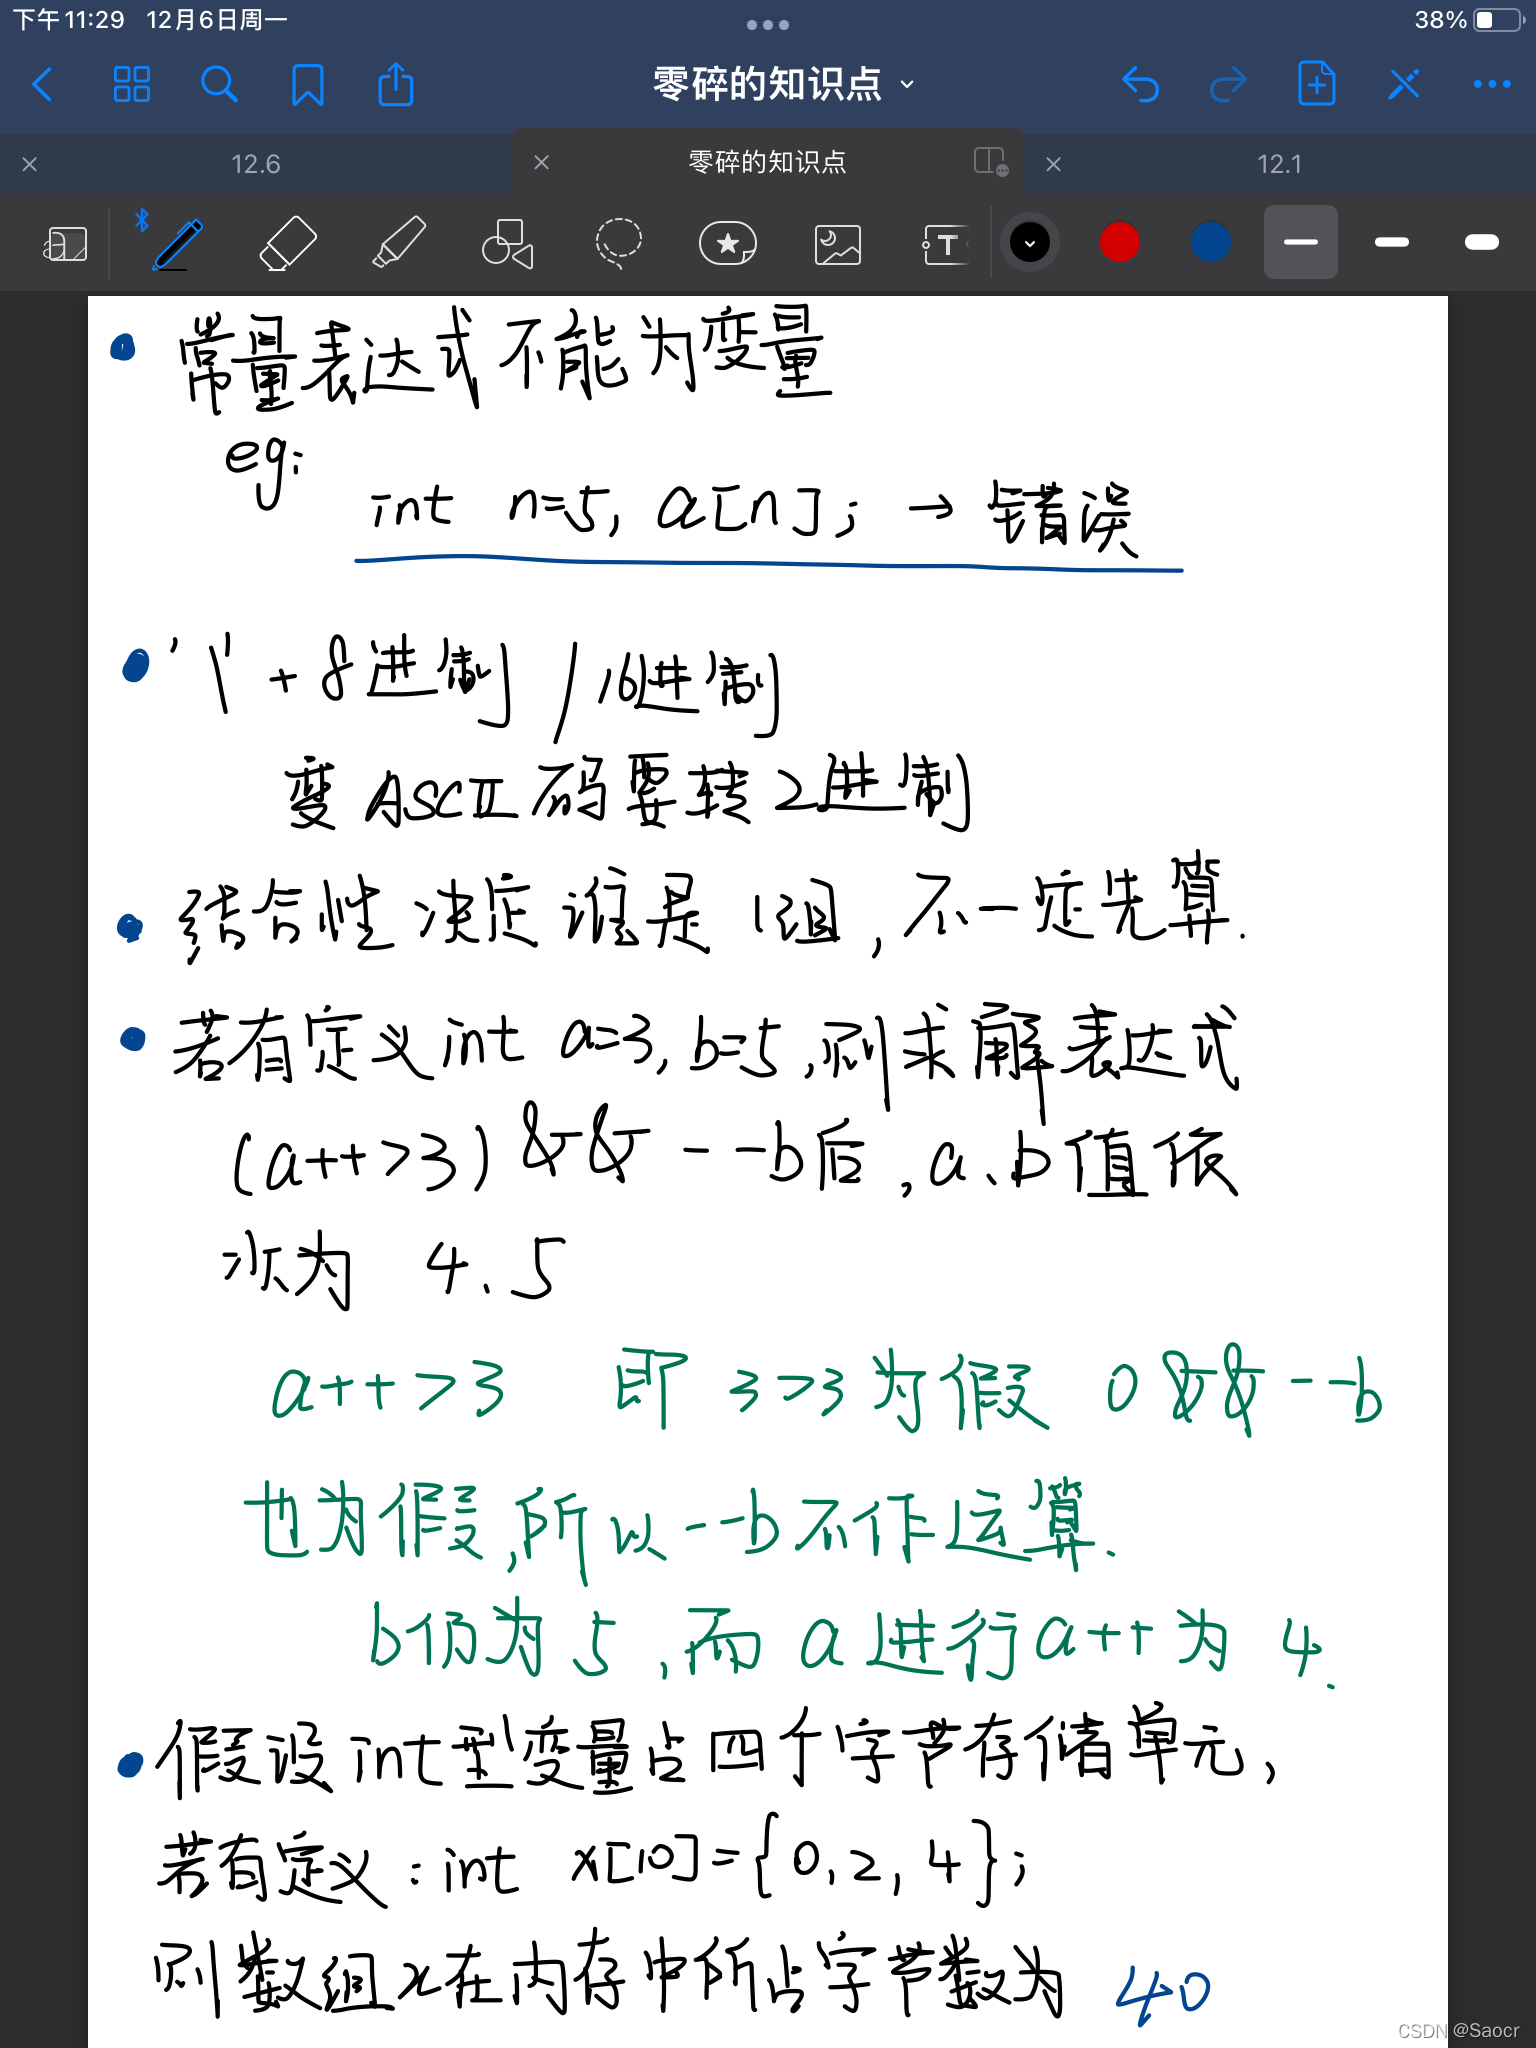 下午11:29 12月6日周一
38%
零碎的知识点
12.6
零碎的知识点
12.1
常量表达式不能为变量
eg:
int n=5, a[n]; → 错误
'\' + 8进制 / 16进制
变ASCII码要转2进制
结合性 决定谁是1组,不一定先算.
若有定义int a=3, b=5,则求解表达式
(a++>3) && --b后,a、b值依
次为 4、5
a++>3 即 3>3为假 0 && --b
也为假,所以--b不作运算.
b仍为5,而a进行a++为 4.
假设int型变量占四个字节存储单元,
若有定义:int x[10]={0,2,4};
则数组x在内存中所占字节数为 40
CSDN @Saocr